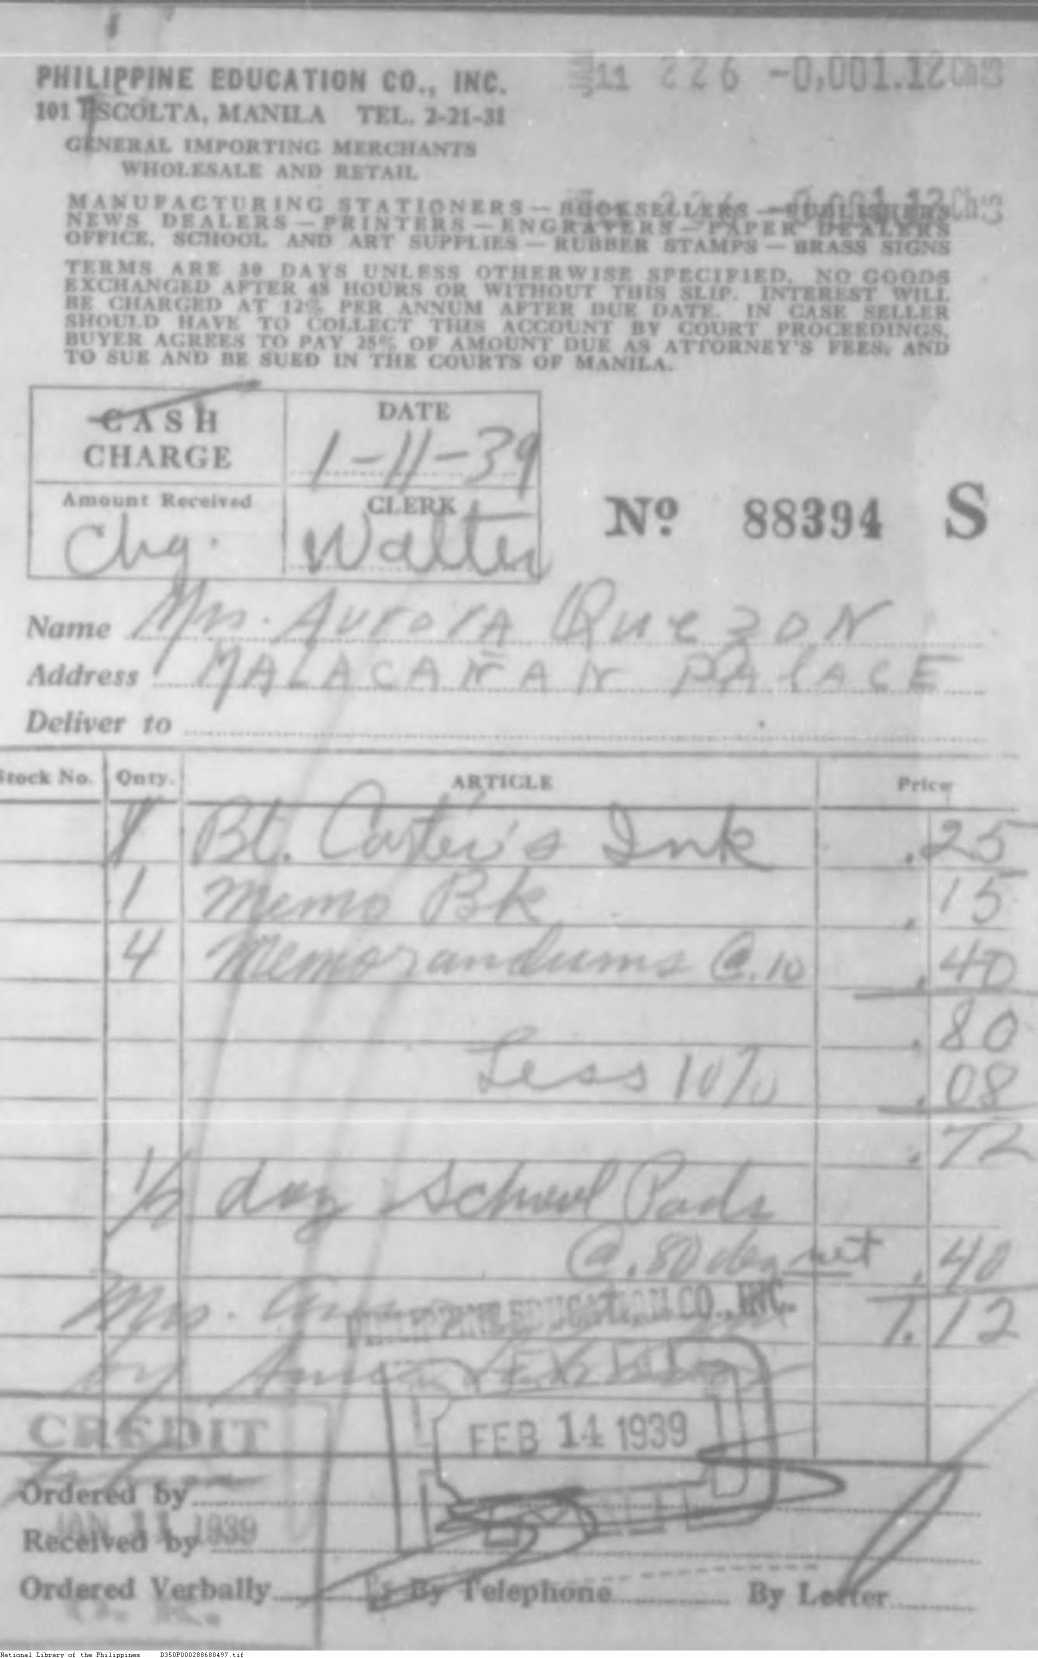 PHILIPPINE EDUCATION CO., INC.
11 226 -0,001.12 Chg
101 ESCOLTA, MANILA TEL. 2-21-31
GENERAL IMPORTING MERCHANTS
WHOLESALE AND RETAIL
MANUFACTURING STATIONERS — BOOKSELLERS — PUBLISHERS
NEWS DEALERS — PRINTERS — ENGRAVERS — PAPER DEALERS
OFFICE, SCHOOL AND ART SUPPLIES — RUBBER STAMPS — BRASS SIGNS
TERMS ARE 30 DAYS UNLESS OTHERWISE SPECIFIED. NO GOODS
EXCHANGED AFTER 48 HOURS OR WITHOUT THIS SLIP. INTEREST WILL
BE CHARGED AT 12% PER ANNUM AFTER DUE DATE. IN CASE SELLER
SHOULD HAVE TO COLLECT THIS ACCOUNT BY COURT PROCEEDINGS,
BUYER AGREES TO PAY 25% OF AMOUNT DUE AS ATTORNEY'S FEES, AND
TO SUE AND BE SUED IN THE COURTS OF MANILA.
CASH
CHARGE
DATE
1-11-39
Amount Received
Chg.
CLERK
Walter
Nº 88394 S
Name Mrs. Aurora Quezon
Address MALACAÑAN PALACE
Deliver to
Stock No. Qnty. ARTICLE Price
1 Bt. Carter's Ink .25
1 Memo Bk .15
4 Memorandums @.10 .40
.80
Less 10% .08
.72
1/2 doz School Pads
@.80 doz net .40
Mrs. 1.12
PHILIPPINE EDUCATION CO., INC.
by
FEB 14 1939
CREDIT
Ordered by
JAN 11 1939
Received by
Ordered Verbally By Telephone By Letter
O. K.
National Library of the Philippines D350P000288680497.tif